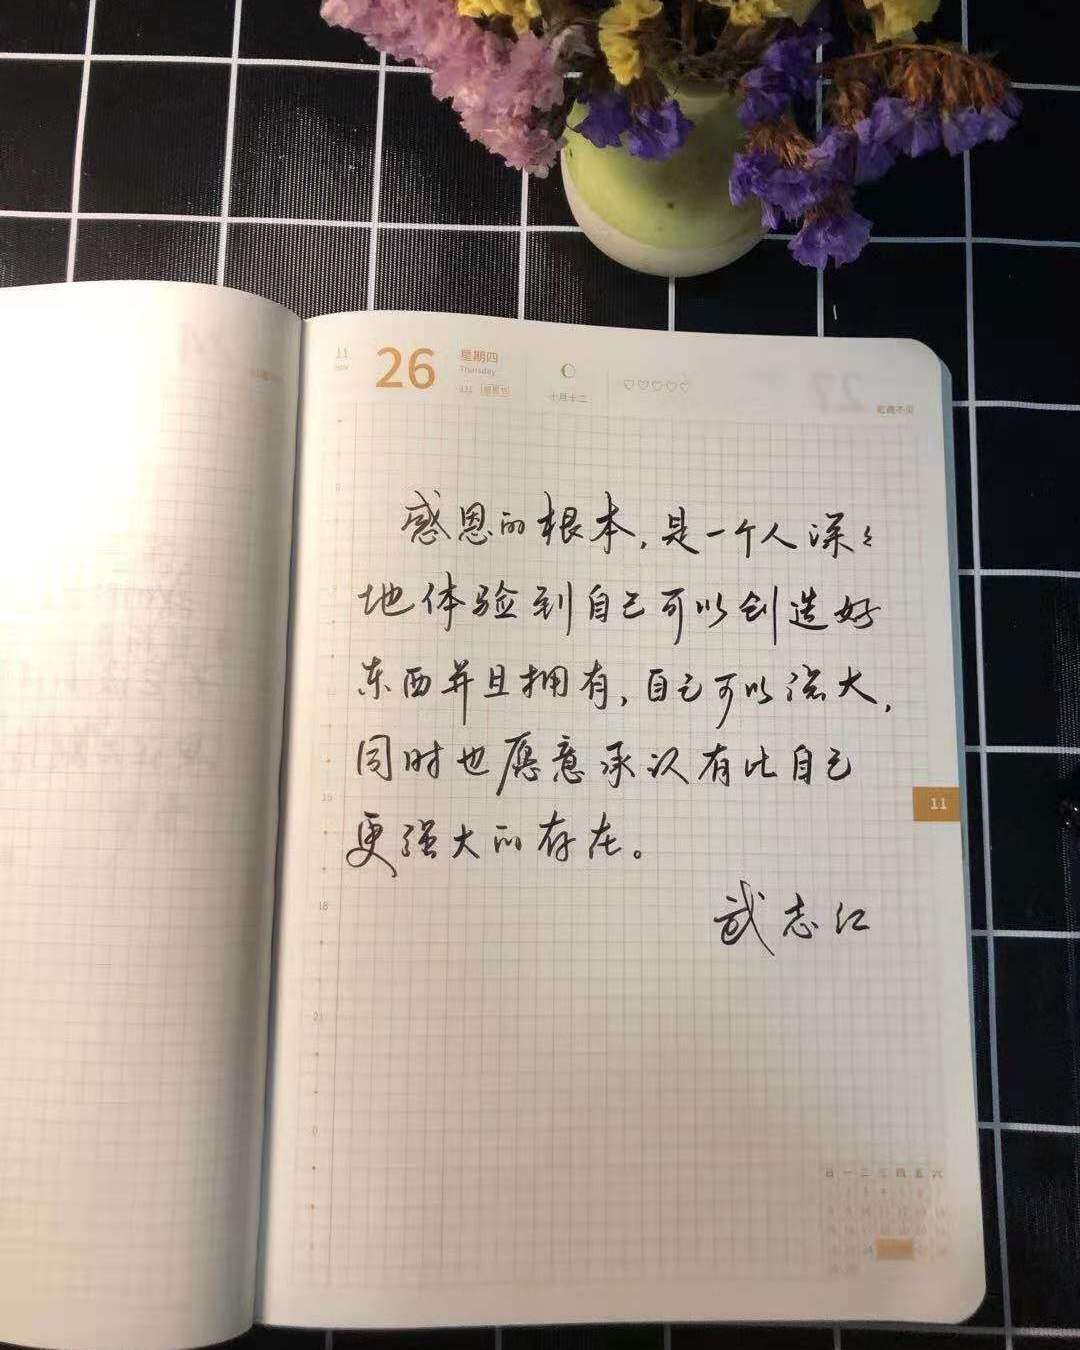 11
Nov
26
星期四
Thursday
331
感恩节
十月十二
感恩的根本，是一个人深々
地体验到自己可以创造好
东西并且拥有，自己可以强大，
同时也愿意承认有比自己
更强大的存在。
武志红
11
15
18
21
0